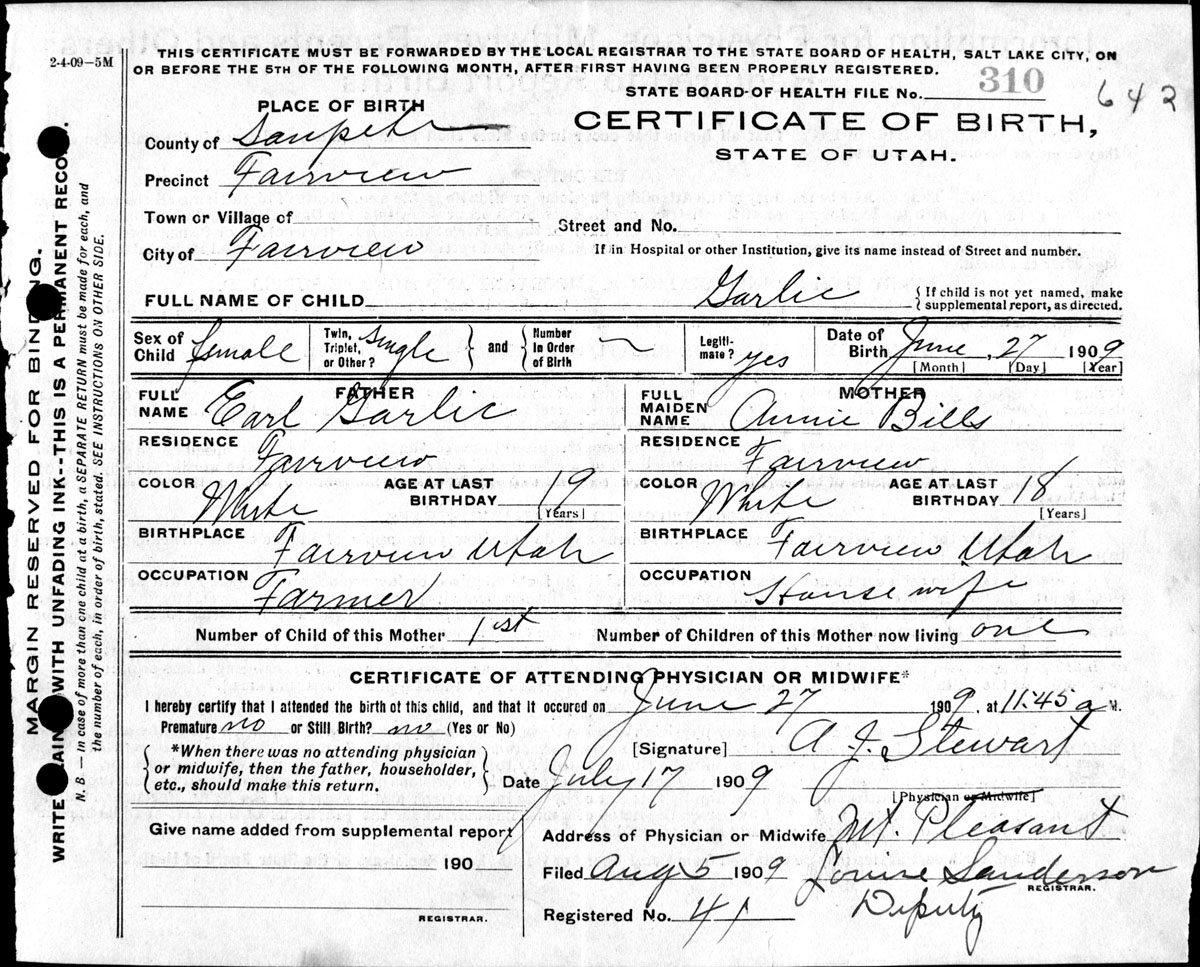 2-4-09-5M
THIS CERTIFICATE MUST BE FORWARDED BY THE LOCAL REGISTRAR TO THE STATE BOARD OF HEALTH, SALT LAKE CITY, ON
OR BEFORE THE 5TH OF THE FOLLOWING MONTH, AFTER FIRST HAVING BEEN PROPERLY REGISTERED.
STATE BOARD OF HEALTH FILE No. 310
642
PLACE OF BIRTH
CERTIFICATE OF BIRTH,
STATE OF UTAH.
County of Sanpete
Precinct Fairview
Town or Village of
Street and No.
City of Fairview
If in Hospital or other Institution, give its name instead of Street and number.
FULL NAME OF CHILD Garlic
{If child is not yet named, make supplemental report, as directed.
Sex of Child female
Twin, Triplet, or Other? Single } and { Number in Order of Birth
Legitimate? yes
Date of Birth June, 27 1909
[Month] [Day] [Year]
FATHER
FULL NAME Earl Garlic
RESIDENCE Fairview
COLOR White AGE AT LAST BIRTHDAY 19 [Years]
BIRTHPLACE Fairview Utah
OCCUPATION Farmer
MOTHER
FULL MAIDEN NAME Annie Bills
RESIDENCE Fairview
COLOR White AGE AT LAST BIRTHDAY 18 [Years]
BIRTHPLACE Fairview Utah
OCCUPATION House wife
Number of Child of this Mother 1st Number of Children of this Mother now living one
CERTIFICATE OF ATTENDING PHYSICIAN OR MIDWIFE*
I hereby certify that I attended the birth of this child, and that it occured on June 27 1909, at 11.45 a M.
Premature no or Still Birth? no (Yes or No)
[Signature] A. J. Stewart
[Physician or Midwife]
{*When there was no attending physician
or midwife, then the father, householder,
etc., should make this return.}
Date July 17 1909
Give name added from supplemental report
190
REGISTRAR.
Address of Physician or Midwife Mt. Pleasant
Filed Aug 5 1909 Louise Sanderson
REGISTRAR.
Deputy
Registered No. 41
MARGIN RESERVED FOR BINDING.
WRITE PLAINLY WITH UNFADING INK--THIS IS A PERMANENT RECORD.
N. B.—in case of more than one child at a birth, a SEPARATE RETURN must be made for each, and
the number of each, in order of birth, stated. SEE INSTRUCTIONS ON OTHER SIDE.